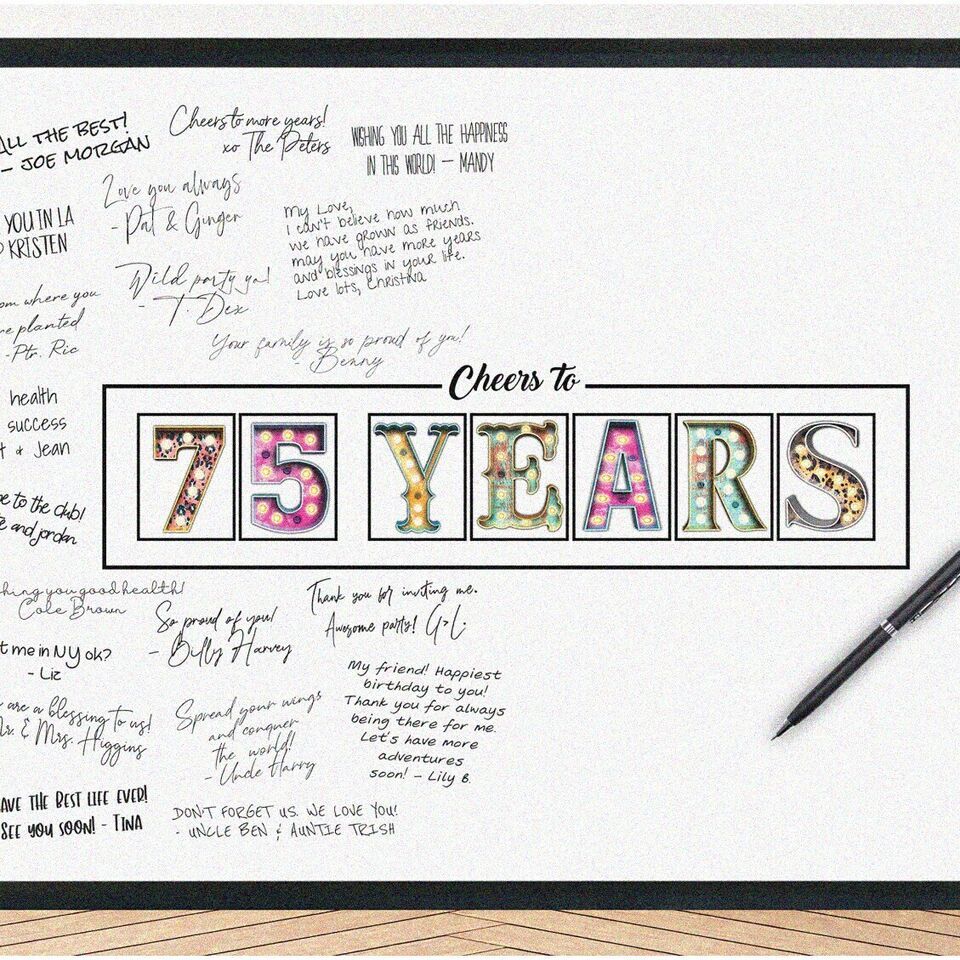 ALL THE BEST!
- JOE MORGAN
Cheers to more years!
xo The Peters
WISHING YOU ALL THE HAPPINESS
IN THIS WORLD! - MANDY
Love you always
- Pat & Ginger
YOU IN LA
KRISTEN
My Love,
I can't believe how much
we have grown as friends.
may you have more years
and blessings in your life.
Love lots, Christina
Wild party ya!
- T. Dex
om where you
re planted
-Ptr. Ric
Your family is so proud of you!
- Benny
health
success
& Jean
Cheers to
75 YEARS
e to the club!
e and jordan
hing you good health!
Cole Brown
So proud of you!
- Billy Harvey
Thank you for inviting me.
Awesome party! G>L
t me in NY ok?
- Liz
My friend! Happiest
birthday to you!
Thank you for always
being there for me.
Let's have more
adventures
soon! - Lily B.
are a blessing to us!
Mr. & Mrs. Higgins
Spread your wings
and conquer
the world!
- Uncle Harry
AVE THE BEST LIFE EVER!
SEE YOU SOON! - TINA
DON'T FORGET US. WE LOVE YOU!
- UNCLE BEN & AUNTIE TRISH